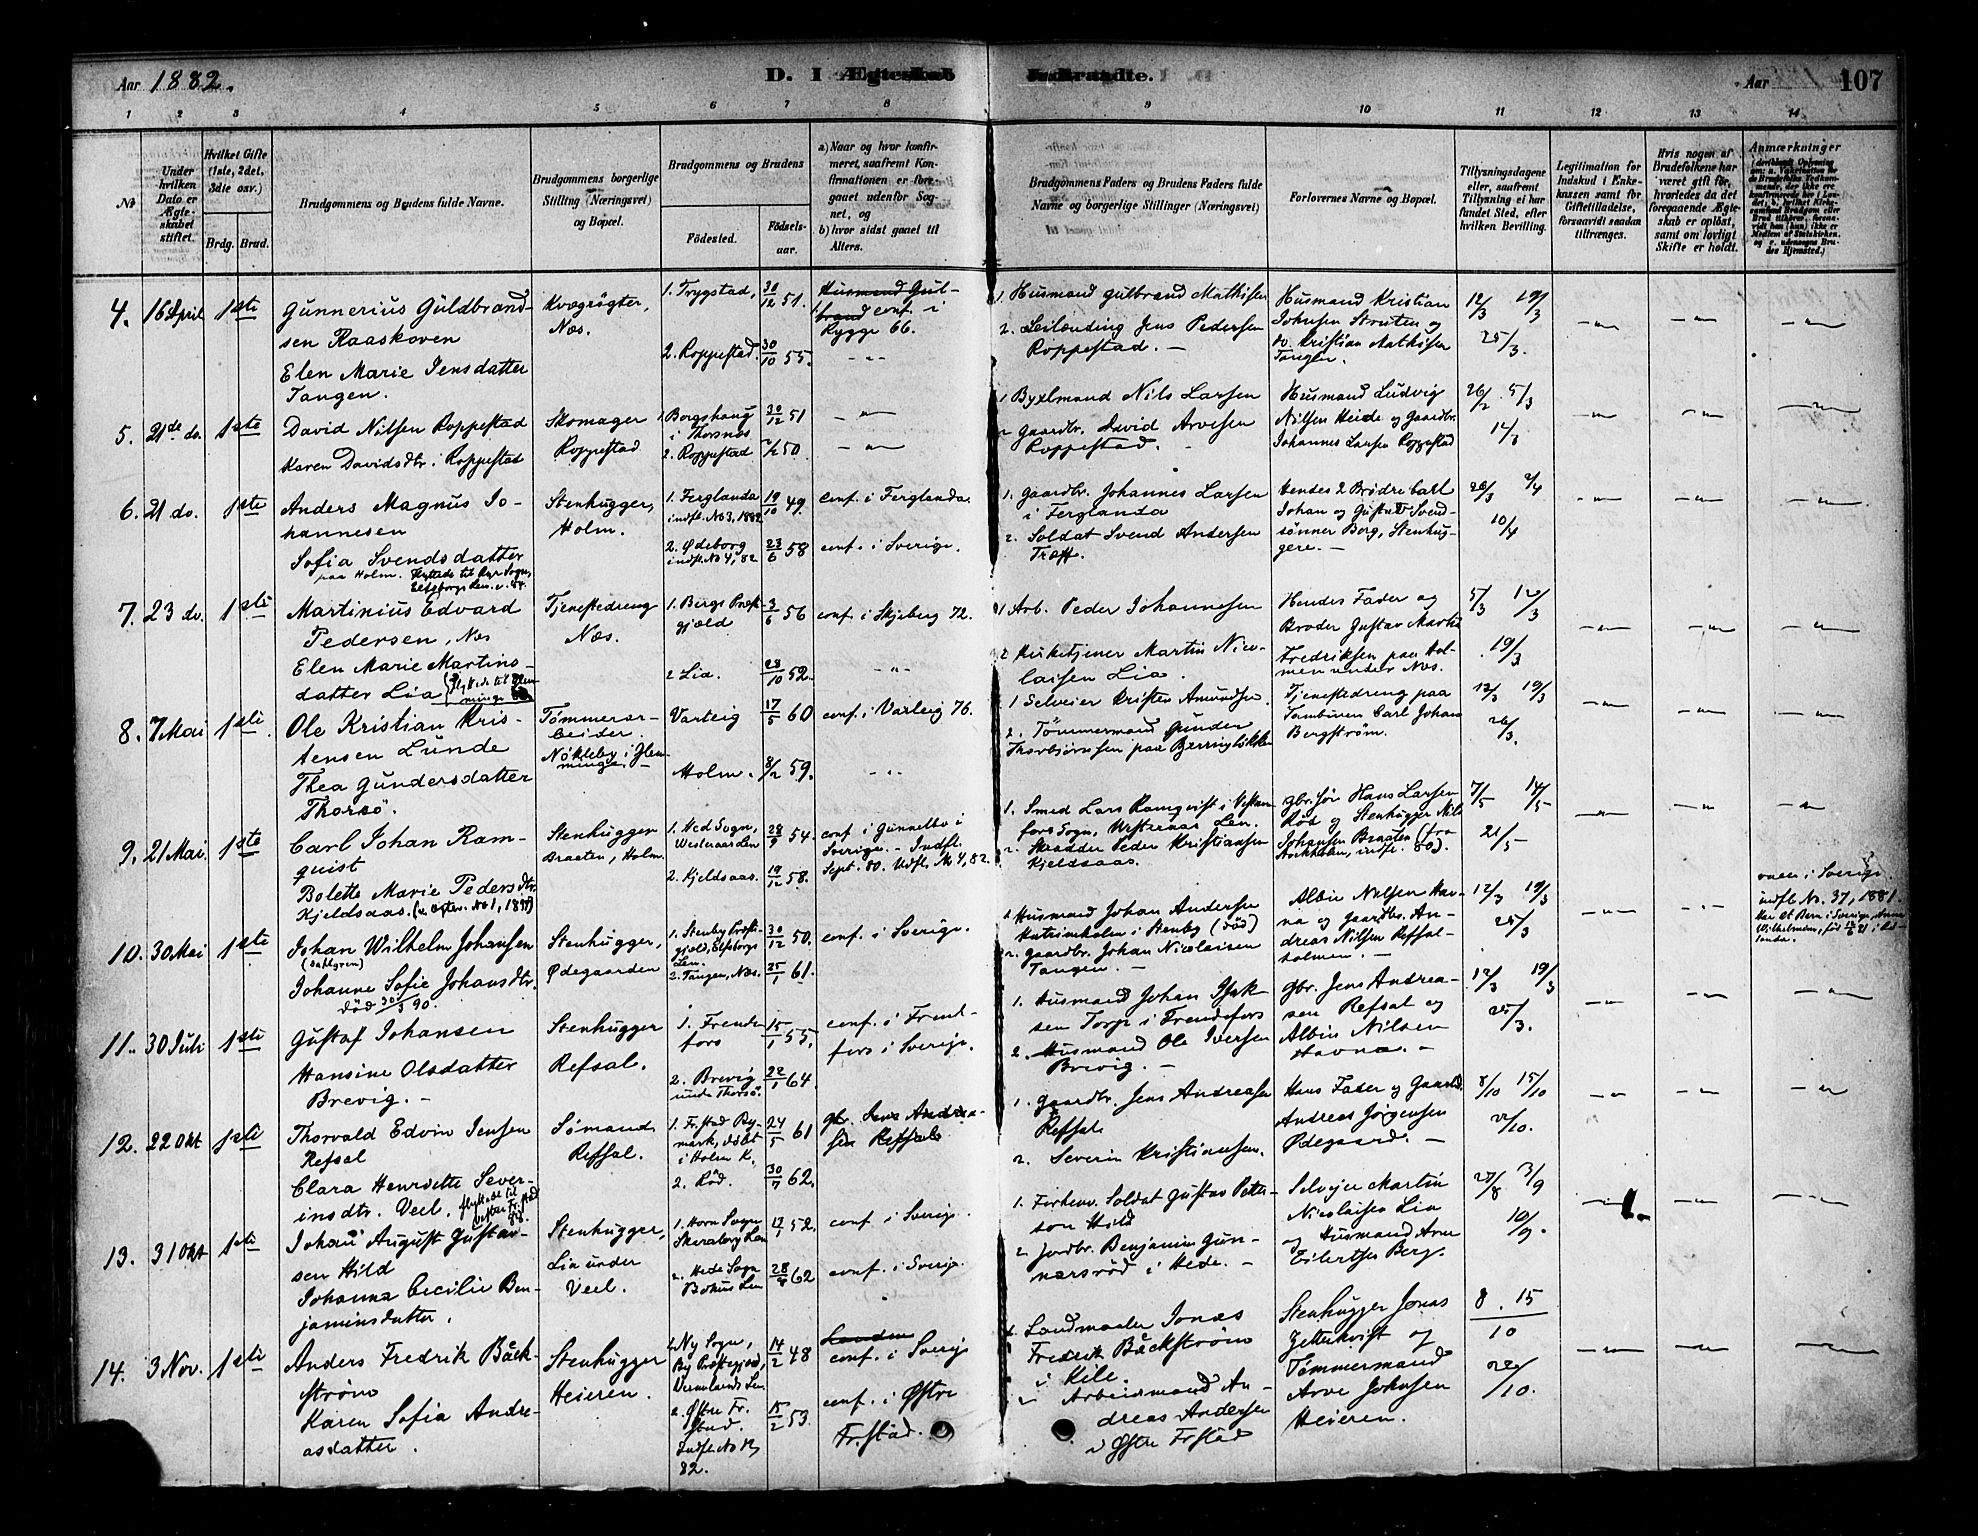 Aar 1882.
D. I Ægteskab
Indtraadte.
Aar
107
1 2 3 4 5 6 7 8 9 10 11 12 13 14
No
Under hvilken Dato er Ægteskabet stiftet.
Hvilket Gifte (1ste, 2det, 3die osv.)
Brdg. Brud.
Brudgommens og Brudens fulde Navne.
Brudgommens borgerlige Stilling (Næringsvei) og Bopæl.
Brudgommens og Brudens
Fødested.
Fødsels-aar.
a) Naar og hvor konfirmeret, saafremt Konfirmationen er foregaaet udenfor Sognet, og
b) hvor sidst gaaet til Alters.
Brudgommens Faders og Brudens Faders fulde Navne og borgerlige Stillinger (Næringsvei)
Forlovernes Navne og Bopæl.
Tillysningsdagene eller, saafremt Tillysning ei har fundet Sted, efter hvilken Bevilling.
Legitimation for Indskud i Enkekassen samt for Giftetilladelse, forsaavidt saadan tiltrænges.
Hvis nogen af Brudefolkene har været gift før, hvorledes da det foregaaende Ægteskab er opløst, samt om lovligt Skifte er holdt.
Anmærkninger
4. 16 April 1ste
Gunnerius Guldbrand-
sen Raaskoven
Elen Marie Jensdatter
Tangen.
Kvægrøgter,
Næs.
1. Trygstad, 30/12 51.
2. Roppestad. 30/10 55.
Husmand Gul-
brand conf. i
Rygge 66.
1. Husmand Gulbrand Mathisen
2. Leilænding Jens Pedersen
Roppestad. —
Husmand Kristian
Johnsen Struten og
do. Kristian Mathisen
Tangen.
12/3 19/3
25/3.
5. 21de do. 1ste
David Nilsen Roppestad
Karen Davidsdtr. Roppestad
Skomager
Roppestad
1. Borgshaug
i Thorsnæs
30/12 51
2. Roppestad 2/2 50.
1 Byxlmand Nils Larsen
2 Gaardbr. David Arvesen
Roppestad.
Husmand Ludvig
Nilsen Heide og Gaardbr.
Johannes Larsen Roppestad
26/2 5/3
12/3
6. 21 do. 1ste
Anders Magnus Jo-
hannesen
Sofia Svendsdatter
paa Holm. Flyttede til Ryr Sogn,
Elfsborgs Len.
Stenhugger,
Holm.
1. Ferglanda
indfl. No 3, 1882
19/10 49.
2. Ødeborg
indfl. No 4, 82
23/6 58
conf. i Ferglanda.
conf. i Sverige.
1. Gaardbr. Johannes Larsen
i Ferglanda
2. Soldat Svend Andersen
Træff.
Hendes 2 Brødre Carl
Johan og Gustaf Svend-
sønner Borg, Stenhug-
gere. —
26/3 2/4
10/4
7. 23 do. 1ste
Martinius Edvard
Pedersen, Næs
Elen Marie Martins-
datter Lia
Tjenestedreng
Næs.
1. Bergs Præst-
gjæld
3/6 56
2 Lia. 28/10 52.
conf. i Skjeberg 72.
1 Arb. Peder Johannesen
2 Kirketjener Martin Nico-
laisen Lia.
Hendes Fader og
Broder Gustav Martin
Fredriksen paa Hol-
men under Næs.
5/3 12/3
19/3
8. 7 Mai 1ste.
Ole Kristian Kris-
tensen Lunde
Thea Gundersdatter
Thorsø.
Tømmerar-
beider.
Nøkleby i Glem-
minge. —
Varteig 17/5 60
Holm. 8/2 59.
conf. i Varteig 76.
1 Selveier Kristen Amundsen
2. Tømmermand Gunder
Thorbjørnsen paa Berringløkken
Tjenestedreng paa
Tambunen Carl Johan
Bergstrøm.
12/3 19/3
26/3.
9. 21 Mai 1ste
Carl Johan Ram-
quist
Bolette Marie Pedersdtr.
Kjeldsaas.
Stenhugger
Braaten, Holm.
1. Hed Sogn,
Westeraas Len
28/9 54
2. Kjeldsaas. 19/12 58.
conf i Gunnelbo i
Sverige. — Indfl.
Sept. 80. Udfl. No 4, 82.
1. Smed Lars Ramqvist i Vestan-
fors Sogn, Westeraas Len.
2. Skrædder Peder Kristiansen
Kjeldsaas.
Gbr.før Hans Larsen
Rød og Stenhugger Nils
Johansen Braaten (fra
Stockholm, indfl. 80).
7/5 14/5
21/5
10. 30 Mai 1ste
Johan Wilhelm Johansen
(Dahlgren)
Johanne Sofie Johansdtr.
død 30/3 90.
Stenhugger,
Ødegaarden
1. Stenby Præst-
gjæld, Elfsborgs
Len.
30/12 50.
2. Tangen, Næs. 25/1 61.
conf. i Sverige.
1 Husmand Johan Andersen
Katrineholm i Stenby (død)
2. Gaardbr. Johan Nicolaisen
Tangen. —
Albin Nilsen Hav-
na og Gaardbr. An-
dreas Nilsen Refsal-
holmen. —
12/3 19/3
25/3
indfl. No. 37, 1881.
11. 30 Juli 1ste
Gustaf Johansen
Hansine Olsdatter
Brevig. —
Stenhugger
Refsal.
1. Frende-
fors
15/1 55.
2. Brevig
under Thorsø.
22/1 64.
conf. i Frende-
fors i Sverige.
1. Husmand Johan Isak-
sen Torp i Frendefors
2. Husmand Ole Iversen
Brevig. —
Gbr. Jens Andrea-
sen Refsal og
Albin Nilsen
Havna. —
12/3 19/3
25/3.
12. 22 Okt 1ste
Thorvald Edvin Jensen
Refsal
Clara Henriette Sever-
insdtr. Veel.
Sømand
Refsal.
1. Fr.stad By-
mark, døbt
i Holm K.
24/5 61
2. Rød. 30/7 62.
gbr. Jens Andrea-
sen Refsal
1. Gaardbr. Jens Andreasen
Refsal
2. Severin Kristiansen.
Hans Fader og Gaardbr.
Andreas Jørgensen
Ødegaard. —
8/10 15/10
22/10.
13. 31 Okt 1ste
Johan August Gustav-
sen Hild
Johanna Cecilie Ben-
jaminsdatter.
Stenhugger,
Lia under
Veel.
1. Horn Sogn
Skaraborg Len
17/1 52.
2. Hede Sogn
Bohus Len
28/8 62
conf i Sverige.
conf. i Sverige.
1. Forhenv. Soldat Gustav Peter-
son Hild
2 Jordbr. Benjamin Gun-
narsrød i Hede. —
Selvejer Martin
Nicolaisen Lia
og Husmand Arne
Eilertsen Berg.
27/8 3/9
10/9.
14. 3 Nov. 1ste
Anders Fredrik Bäck-
strøm
Karen Sofia Andre-
asdatter.
Stenhugger
Heieren.
1. Ny Sogn,
By Præstegjeld,
Vermlands Len
14/2 48
2. Østre Fr.
stad.
Indfl. No 12,
82.
15/2 53.
conf. i Sverige
conf. i Østre
Fr.stad.
1. Landmaaler Jonas
Fredrik Bäckstrøm
i Kile.
2 Arbeidsmand An-
dreas Andersen
i Østre Frstad
Stenhugger Jonas
Zetterkvist og
Tømmermand
Arve Johnsen
Heieren.
8. 15
10
22/10.